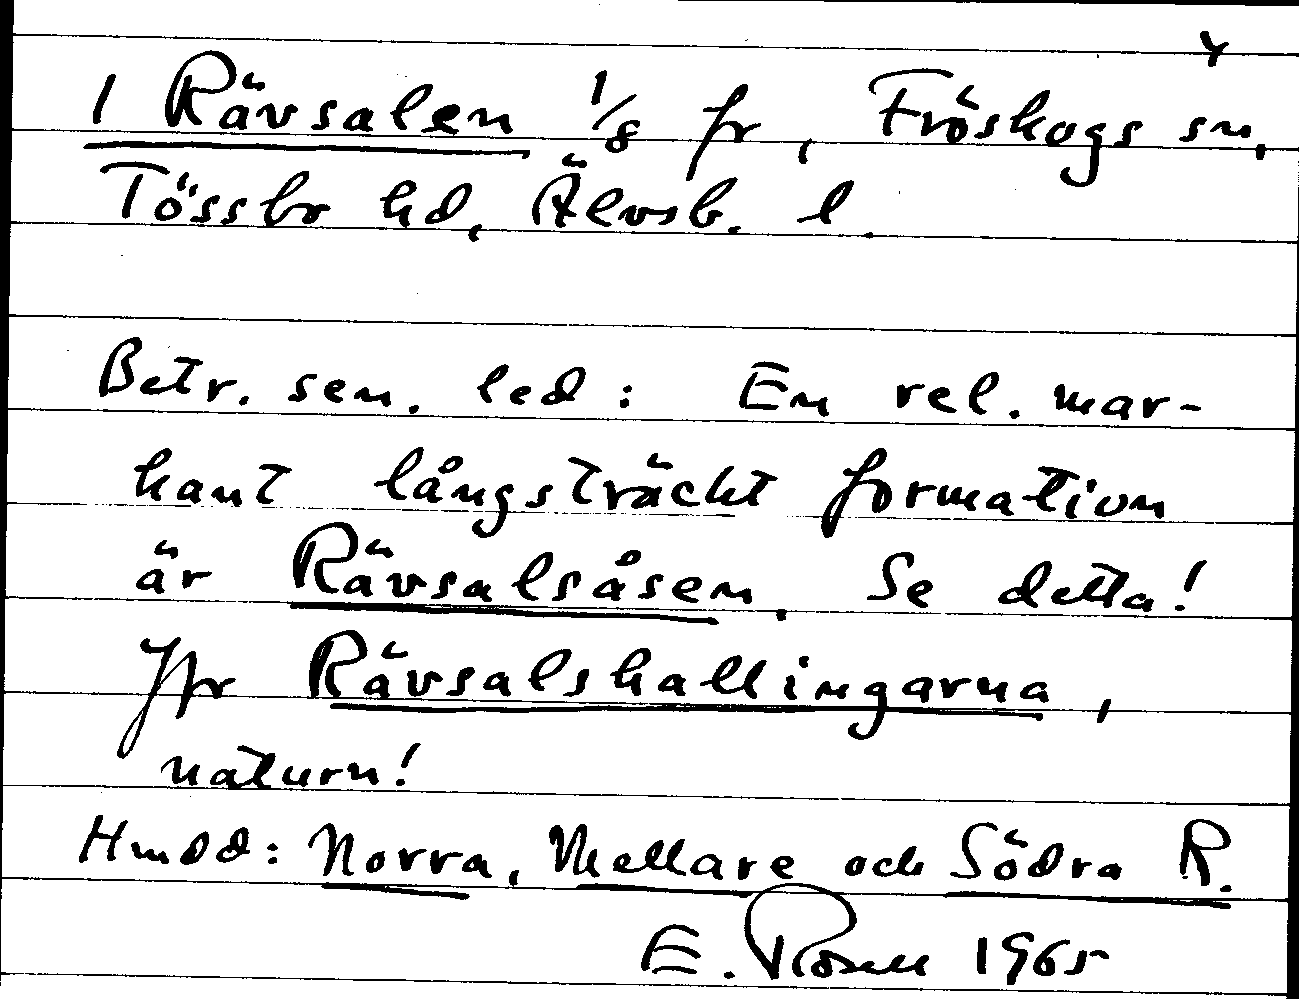 1 Rävsalen 1/8 fr, Fröskogs sn,
Tössbo hd, Älvsb. l.
Betr. sen. led: En rel. mar-
kant långsträckt formation
är Rävsalsåsen. Se detta!
Jfr Rävsalshallingarna,
naturn!
Hmdd: Norra, Mellare och Södra R.
E. Rosell 1965